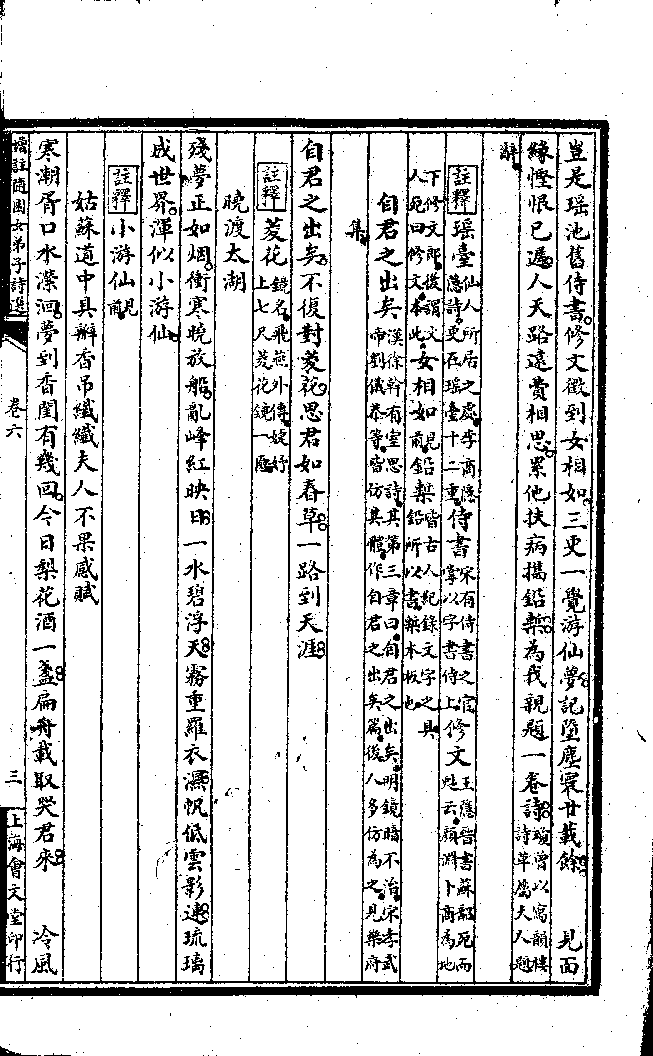 豈是瑶池舊侍書。修文徵到女相如。三更一覺游仙夢。記墮塵寰廿載餘。 見面
緣慳恨已遲。人天路遠費相思。累他扶病攜鉛槧。為我親題一卷詩。瓊曾以寫韻樓詩草屬夫人題
辭
註釋 瑶臺仙人所居之處李商隱詩更在瑶臺十二重侍書宋有侍書之官掌以字書侍上修文王隱晉書蘇韶死而甦云顏淵卜商為地
下修文郎後謂文人死曰修文本此女相如見前鉛槧皆古人紀錄文字之具鉛所以書槧木板也
自君之出矣漢徐幹有室思詩其第三章曰自君之出矣明鏡暗不治宋孝武帝劉儀恭等皆仿其體作自君之出矣篇後人多仿為之見樂府
集
自君之出矣。不復對菱花。思君如春草。一路到天涯。
註釋 菱花鏡名飛燕外傳婕妤上七尺菱花鏡一匳
曉渡太湖
殘夢正如烟。衝寒曉放船。亂峰紅映日。一水碧浮天。霧重羅衣濕。帆低雲影連。琉璃
成世界。渾似小游仙。
註釋 小游仙見前
姑蘇道中具辦香弔纖纖夫人不果感賦
寒潮胥口水瀠洄。夢到香閨有幾回。今日梨花酒一盞。扁舟載取哭君來。 冷風
增註隨園女弟子詩選 卷六 三 上海會文堂印行